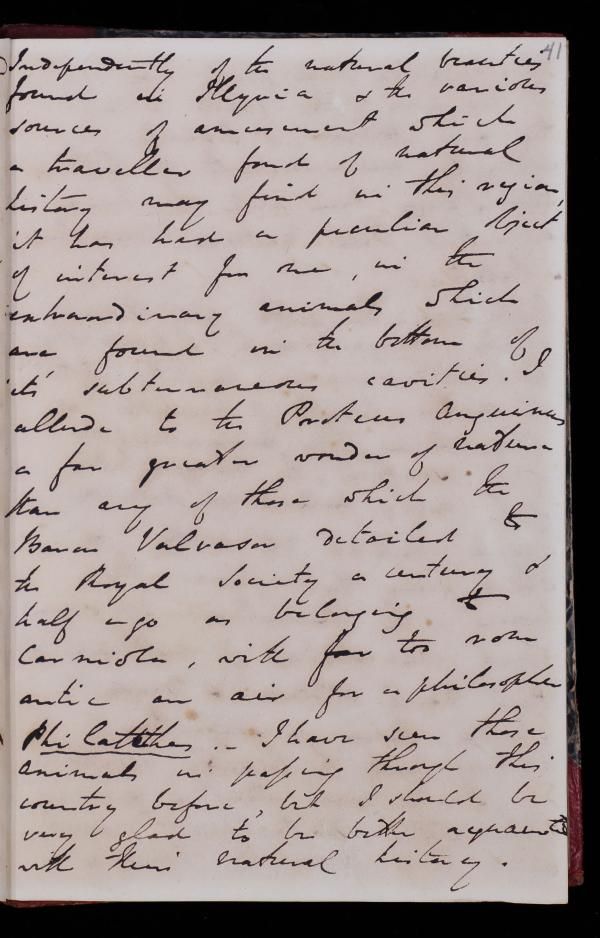 41
Independently of the natural beauties
found in Illyria & the various
sources of amusement which
a traveller fond of natural
history may find in this region,
it has had a peculiar object
of interest for me, in the
extraordinary animals which
are found in the bottom of
its' subterraneous cavities. I
allude to the Proteus Anguinus
a far greater wonder of nature
than any of those which the
Baron Valvasa detailed to
the Royal Society a century &
half ago as belonging to
Carniola, with far too rom
antic an air for a philosopher
Philalethes .- I have seen these
animals in passing through this
country before, but I should be
very glad to be better acquainted
with their natural history.